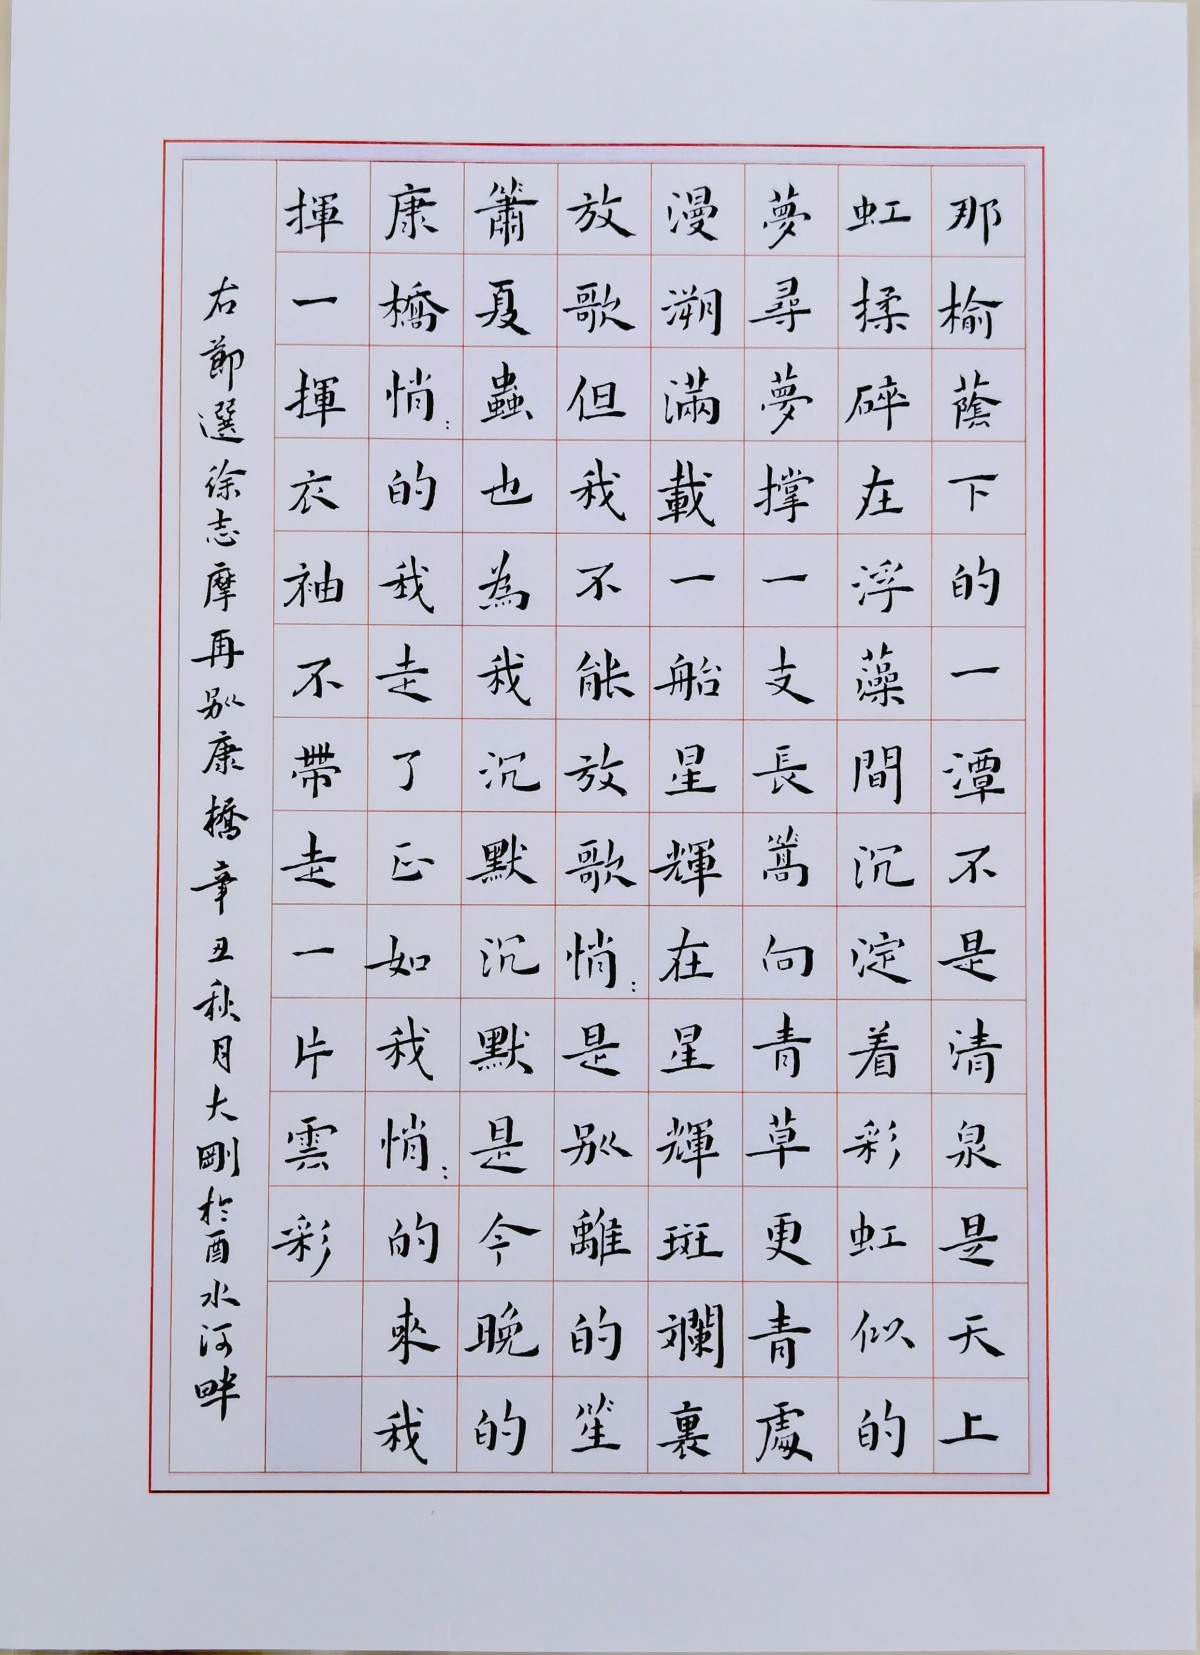 那榆蔭下的一潭不是清泉是天上
虹揉碎在浮藻間沉淀着彩虹似的
夢尋夢撐一支長篙向青草更青處
漫溯滿載一船星輝在星輝斑斕裏
放歌但我不能放歌悄：是別離的笙
簫夏蟲也為我沉默沉默是今晚的
康橋悄：的我走了正如我悄：的來我
揮一揮衣袖不帶走一片雲彩
右節選徐志摩再別康橋辛丑秋月大剛於酉水河畔